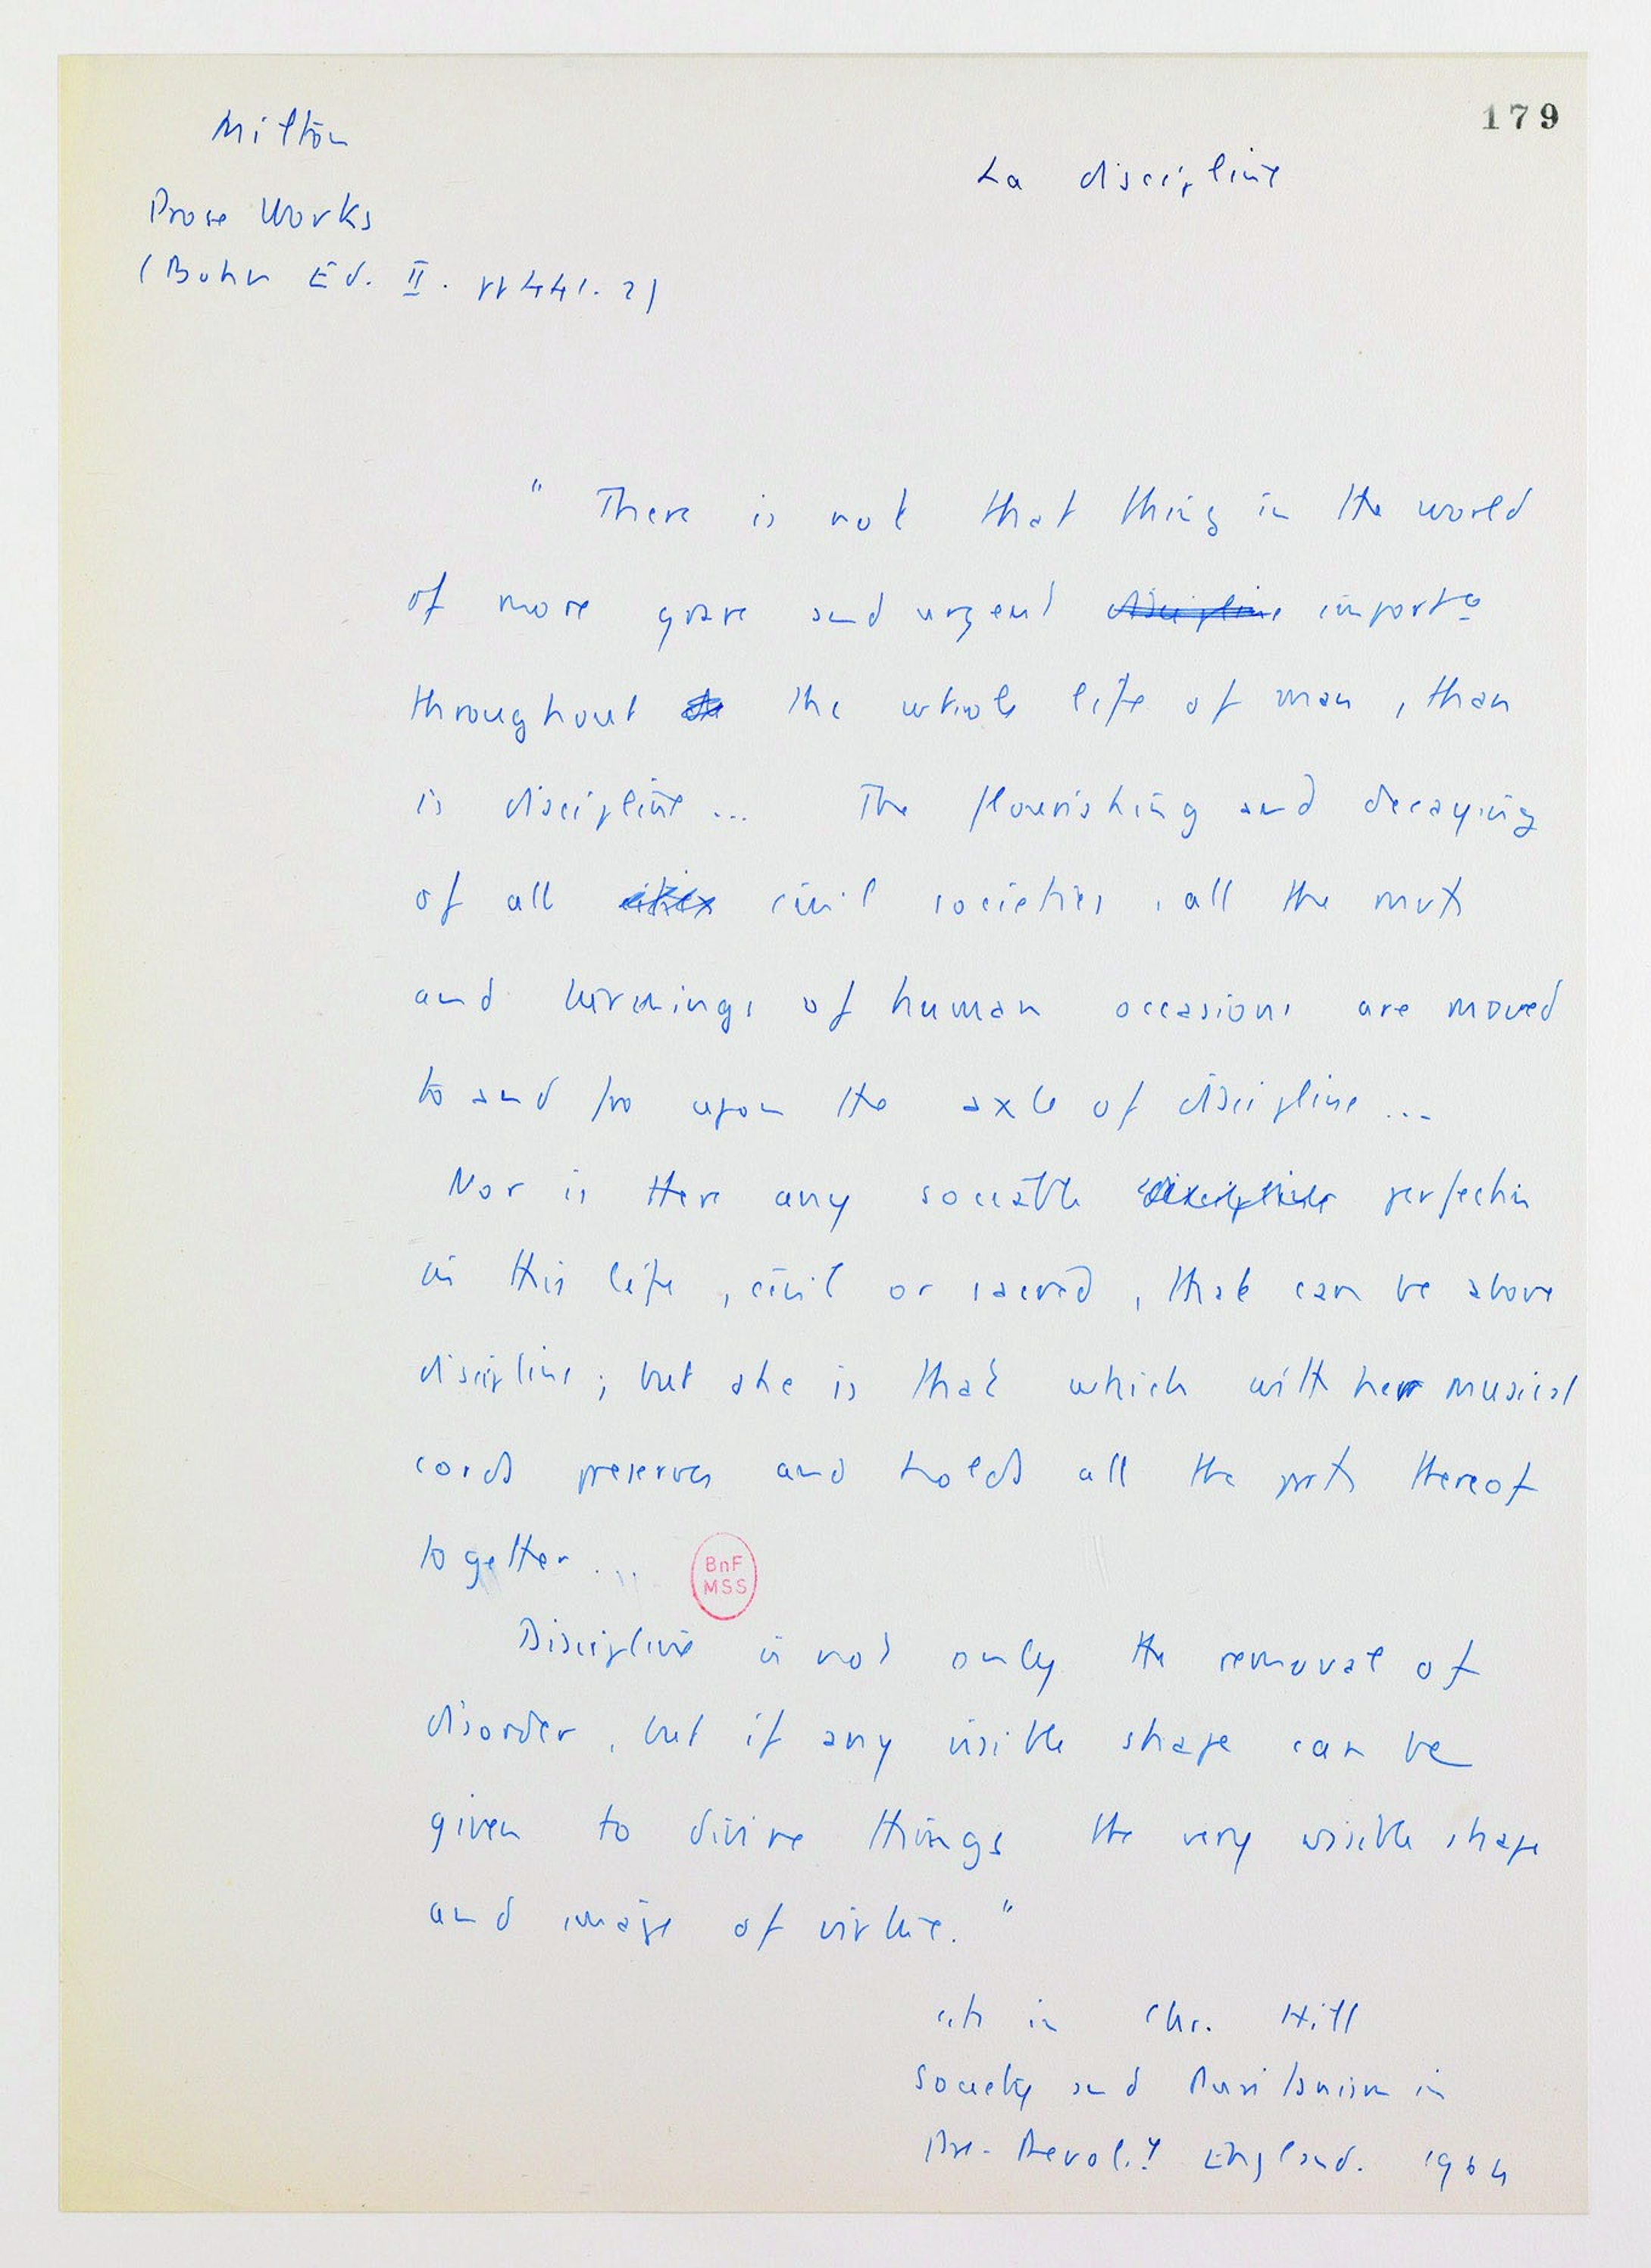 179
Milton
La discipline
Prose Works
(Bohn Ed. II. pp 441. 2)
" There is not that thing in the world
of more grave and urgent discipline import̲ᵉ
throughout the whole life of man, than
is discipline... The flourishing and decaying
of all civil societies, all the mvts
and turnings of human occasions are moved
to and fro upon the axle of discipline...
Nor is there any sociable discipline perfection
in this life, civil or sacred, that can be above
discipline; but she is that which with her musical
cords preserves and holds all the parts thereof
together...
BnF
MSS
Discipline is not only the removal of
disorder, but if any visible shape can be
given to divine things the very visible shape
and image of virtue. "
cit in Chr. Hill
Society and Puritanism in
Pre-Revol.y England. 1964